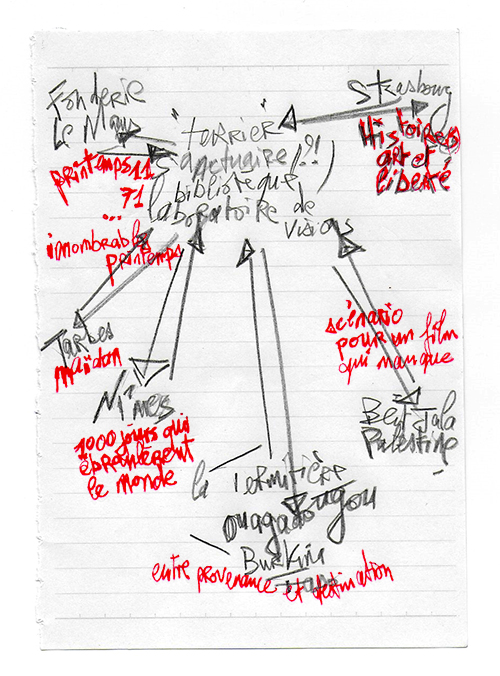 Fonderie
Le Mans
printemps 11
71
...
innombrables
printemps
"terrier"
sanctuaire (?!)
bibliothèque
laboratoire de
visions
Strasbourg
Histoire(s)
art et
liberté
Tarbes
maïdan
Nîmes
1000 jours qui
ébranlèrent
le monde
scénario
pour un film
qui manque
Beit Jala
Palestine
la Termitière
Ouagadougou
Burkina
entre provenance et destination